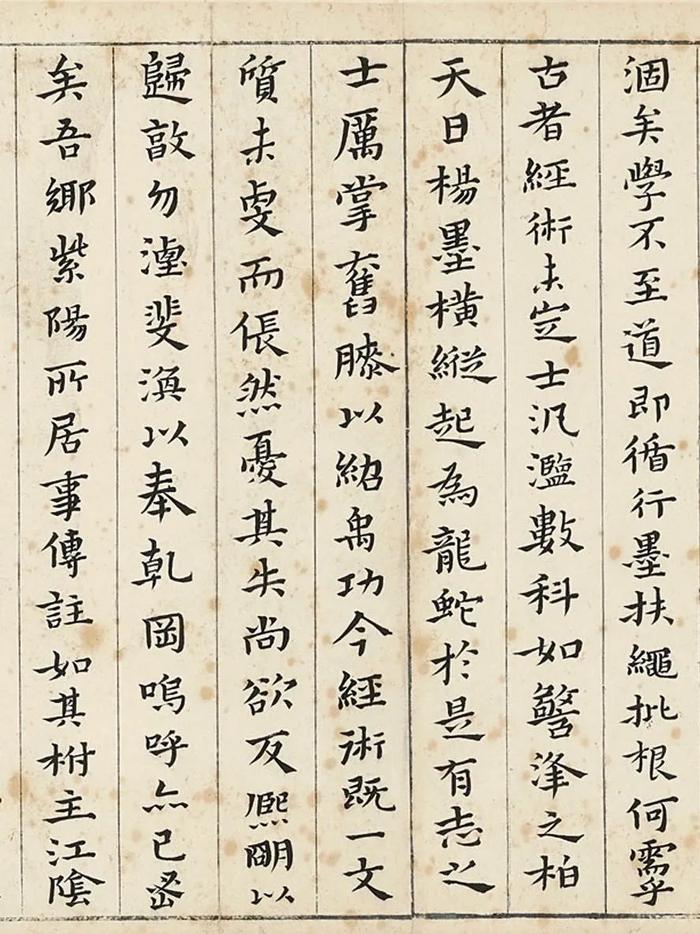 涸矣學不至道即循行墨扶繩批根何需乎
古者經術未定士汎濫數科如警洚之柏
天日楊墨橫縱起為龍蛇於是有志之
士厲掌奮膝以紹禹功今經術既一文
質未虔而倀然憂其失尚欲反熈朙以
歸敦勿湮斐渙以奉乾岡嗚呼亦已密
矣吾鄉紫陽所居事傳註如其柎主江陰